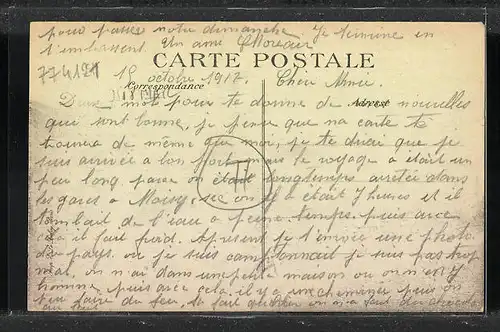 pour passer notre dimanche. Je termine en
t'embrassant. Un ami
CARTE POSTALE
774121
18 octobre 1917. Cher Amie.
Correspondance
Adresse
Deux mot pour te donne de nouvelles
qui sont bonne, je pense que ma carte te
trouvera de même que moi, je te dirai que je
suis arrivée a bon port mais le voyage a était un
peu long parce on était longtemps arretée dans
les gares a on y a était 7 heures et il
tombait de l'eau a peine temps. puis avec
cela il fait froid. Apresent je t'envoie une photo
du pays. ou je suis cantonnait je suis pas trop
mal, on n'ai dans une petite maison ou on n'en
homme, puis avec cela il y a une cheminée puis on
peu faire du feu